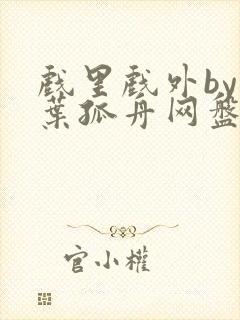 戏里戏外by
葉孤舟网盘
官小權